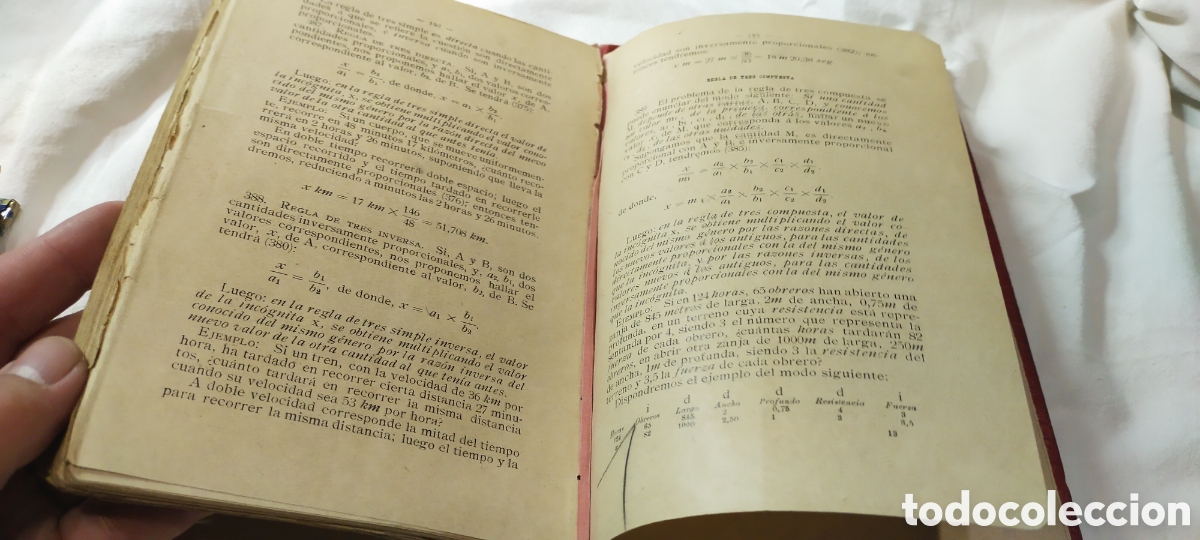 — 192 —
La regla de tres simple es directa cuando las canti-
dades a que se refiere la cuestión son directamente
proporcionales, é inversa cuando son inversamente
proporcionales.
REGLA DE TRES DIRECTA. Si, A y B, son dos
cantidades proporcionales, y, a₁, b₁, dos valores corres-
pondientes, nos proponemos hallar el valor x, de A,
correspondiente al valor, b₂, de B. Se tendrá (375):
x/a₁ = b₂/b₁, de donde, x = a₁ × b₂/b₁
Luego: en la regla de tres simple directa el valor de
la incógnita x, se obtiene multiplicando el valor cono-
cido del mismo género por la razón directa del nuevo
valor de la otra cantidad al que antes tenía.
EJEMPLO: Si un cuerpo, que se mueve uniformemen-
te, recorre en 48 minutos 17 kilómetros, ¿cuánto reco-
rrerá en 2 horas y 26 minutos, suponiendo que lleva la
misma velocidad?
En doble tiempo recorrerá doble espacio; luego el
espacio recorrido y el tiempo tardado en recorrerle
son directamente proporcionales (376); entonces ten-
dremos, reduciendo a minutos las 2 horas y 26 minutos,
x km = 17 km × 146/48 = 51,708 km.
388. REGLA DE TRES INVERSA. Si, A y B, son dos
cantidades inversamente proporcionales, y, a₂, b₁, dos
valores correspondientes, nos proponemos hallar el
valor, x, de A, correspondiente al valor, b₂, de B. Se
tendrá (380):
x/a₁ = b₁/b₂, de donde, x = a₁ × b₁/b₂.
Luego: en la regla de tres simple inversa, el valor
de la incógnita x, se obtiene multiplicando el valor
conocido del mismo género por la razón inversa del
nuevo valor de la otra cantidad al que tenía antes.
EJEMPLO: Si un tren, con la velocidad de 36 km por
hora, ha tardado en recorrer cierta distancia 27 minu-
tos, ¿cuánto tardará en recorrer la misma distancia
cuando su velocidad sea 53 km por hora?
A doble velocidad corresponde la mitad del tiempo
para recorrer la misma distancia; luego el tiempo y la
velocidad son inversamente proporcionales (382); en-
tonces tendremos:
x m = 27 m × 36/53 = 18 m 20,38 seg
REGLA DE TRES COMPUESTA
El problema de la regla de tres compuesta se
puede enunciar del modo siguiente: Si una cantidad
M, depende de otras varias, A, B, C, D, y
correspondiente a los
valores, a₁, b₁, c₁, d₁, de las otras, hallar un nuevo
valor, x, de M, que corresponda á los valores a₂, b₂
de las otras unidades.
Supongamos que la cantidad M, es directamente
proporcional con A y B, é inversamente proporcional
con C y D, tendremos (385):
x/m₁ = a₂/a₁ × b₂/b₁ × c₁/c₂ × d₁/d₂
de donde,
x = m₁ × a₂/a₁ × b₂/b₁ × c₁/c₂ × d₁/d₂
Luego: en la regla de tres compuesta, el valor de
la incógnita x, se obtiene multiplicando el valor co-
nocido del mismo género por las razones directas, de
los nuevos valores á los antiguos, para las cantidades
directamente proporcionales con la del mismo género
que la incógnita, y por las razones inversas, de los
valores nuevos á los antiguos, para las cantidades
inversamente proporcionales con la del mismo género
que la incógnita.
EJEMPLO: Si en 124 horas, 65 obreros han abierto una
zanja de 845 metros de larga, 2m de ancha, 0,75m de
profunda, en un terreno cuya resistencia está repre-
sentanda por 4, siendo 3 el número que representa la
fuerza de cada obrero, ¿cuántas horas tardarán 82
obreros, en abrir otra zanja de 1000m de larga, 250m
de ancha, 1m de profunda, siendo 3 la resistencia del
terreno y 3,5 la fuerza de cada obrero?
Dispondremos el ejemplo del modo siguiente:
i d d d d i
Horas Obreros Largo Ancho Profundo Resistencia Fuerza
124 65 845 2 0,75 4 3
82 1000 2,50 1 3 3,5
13
todocoleccion